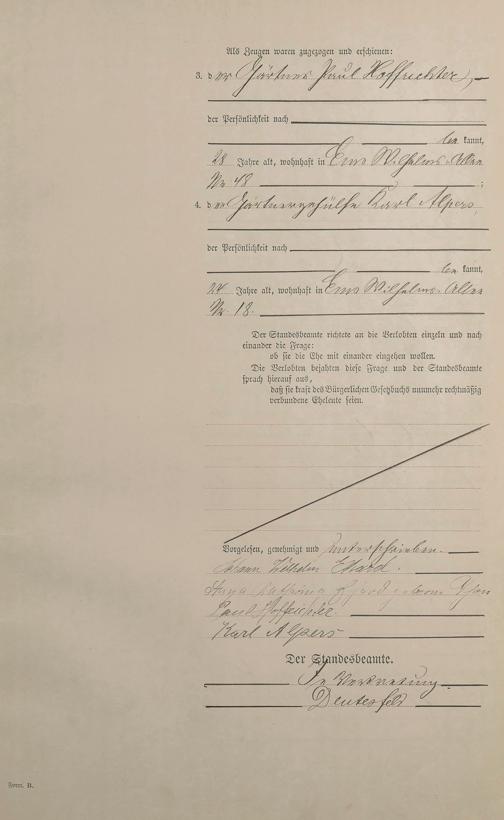 Als Zeugen waren zugezogen und erschienen:
3. der Gärtner Paul Hoffrichter,
der Persönlichkeit nach
bekannt,
28 Jahre alt, wohnhaft in Ems Wilhelms-Allee
Nr. 48 ;
4. der Gärtnergehülfe Karl Alpers,
der Persönlichkeit nach
bekannt,
24 Jahre alt, wohnhaft in Ems Wilhelms-Allee
Nr. 18.
Der Standesbeamte richtete an die Verlobten einzeln und nach
einander die Frage:
ob sie die Ehe mit einander eingehen wollen.
Die Verlobten bejahten diese Frage und der Standesbeamte
sprach hierauf aus,
daß sie kraft des Bürgerlichen Gesetzbuchs nunmehr rechtmäßig
verbundene Eheleute seien.
Vorgelesen, genehmigt und unterschrieben.
Johann Wilhelm
geborene
Paul Hoffrichter
Karl Alpers
Der Standesbeamte.
In Vertretung
Form. B.